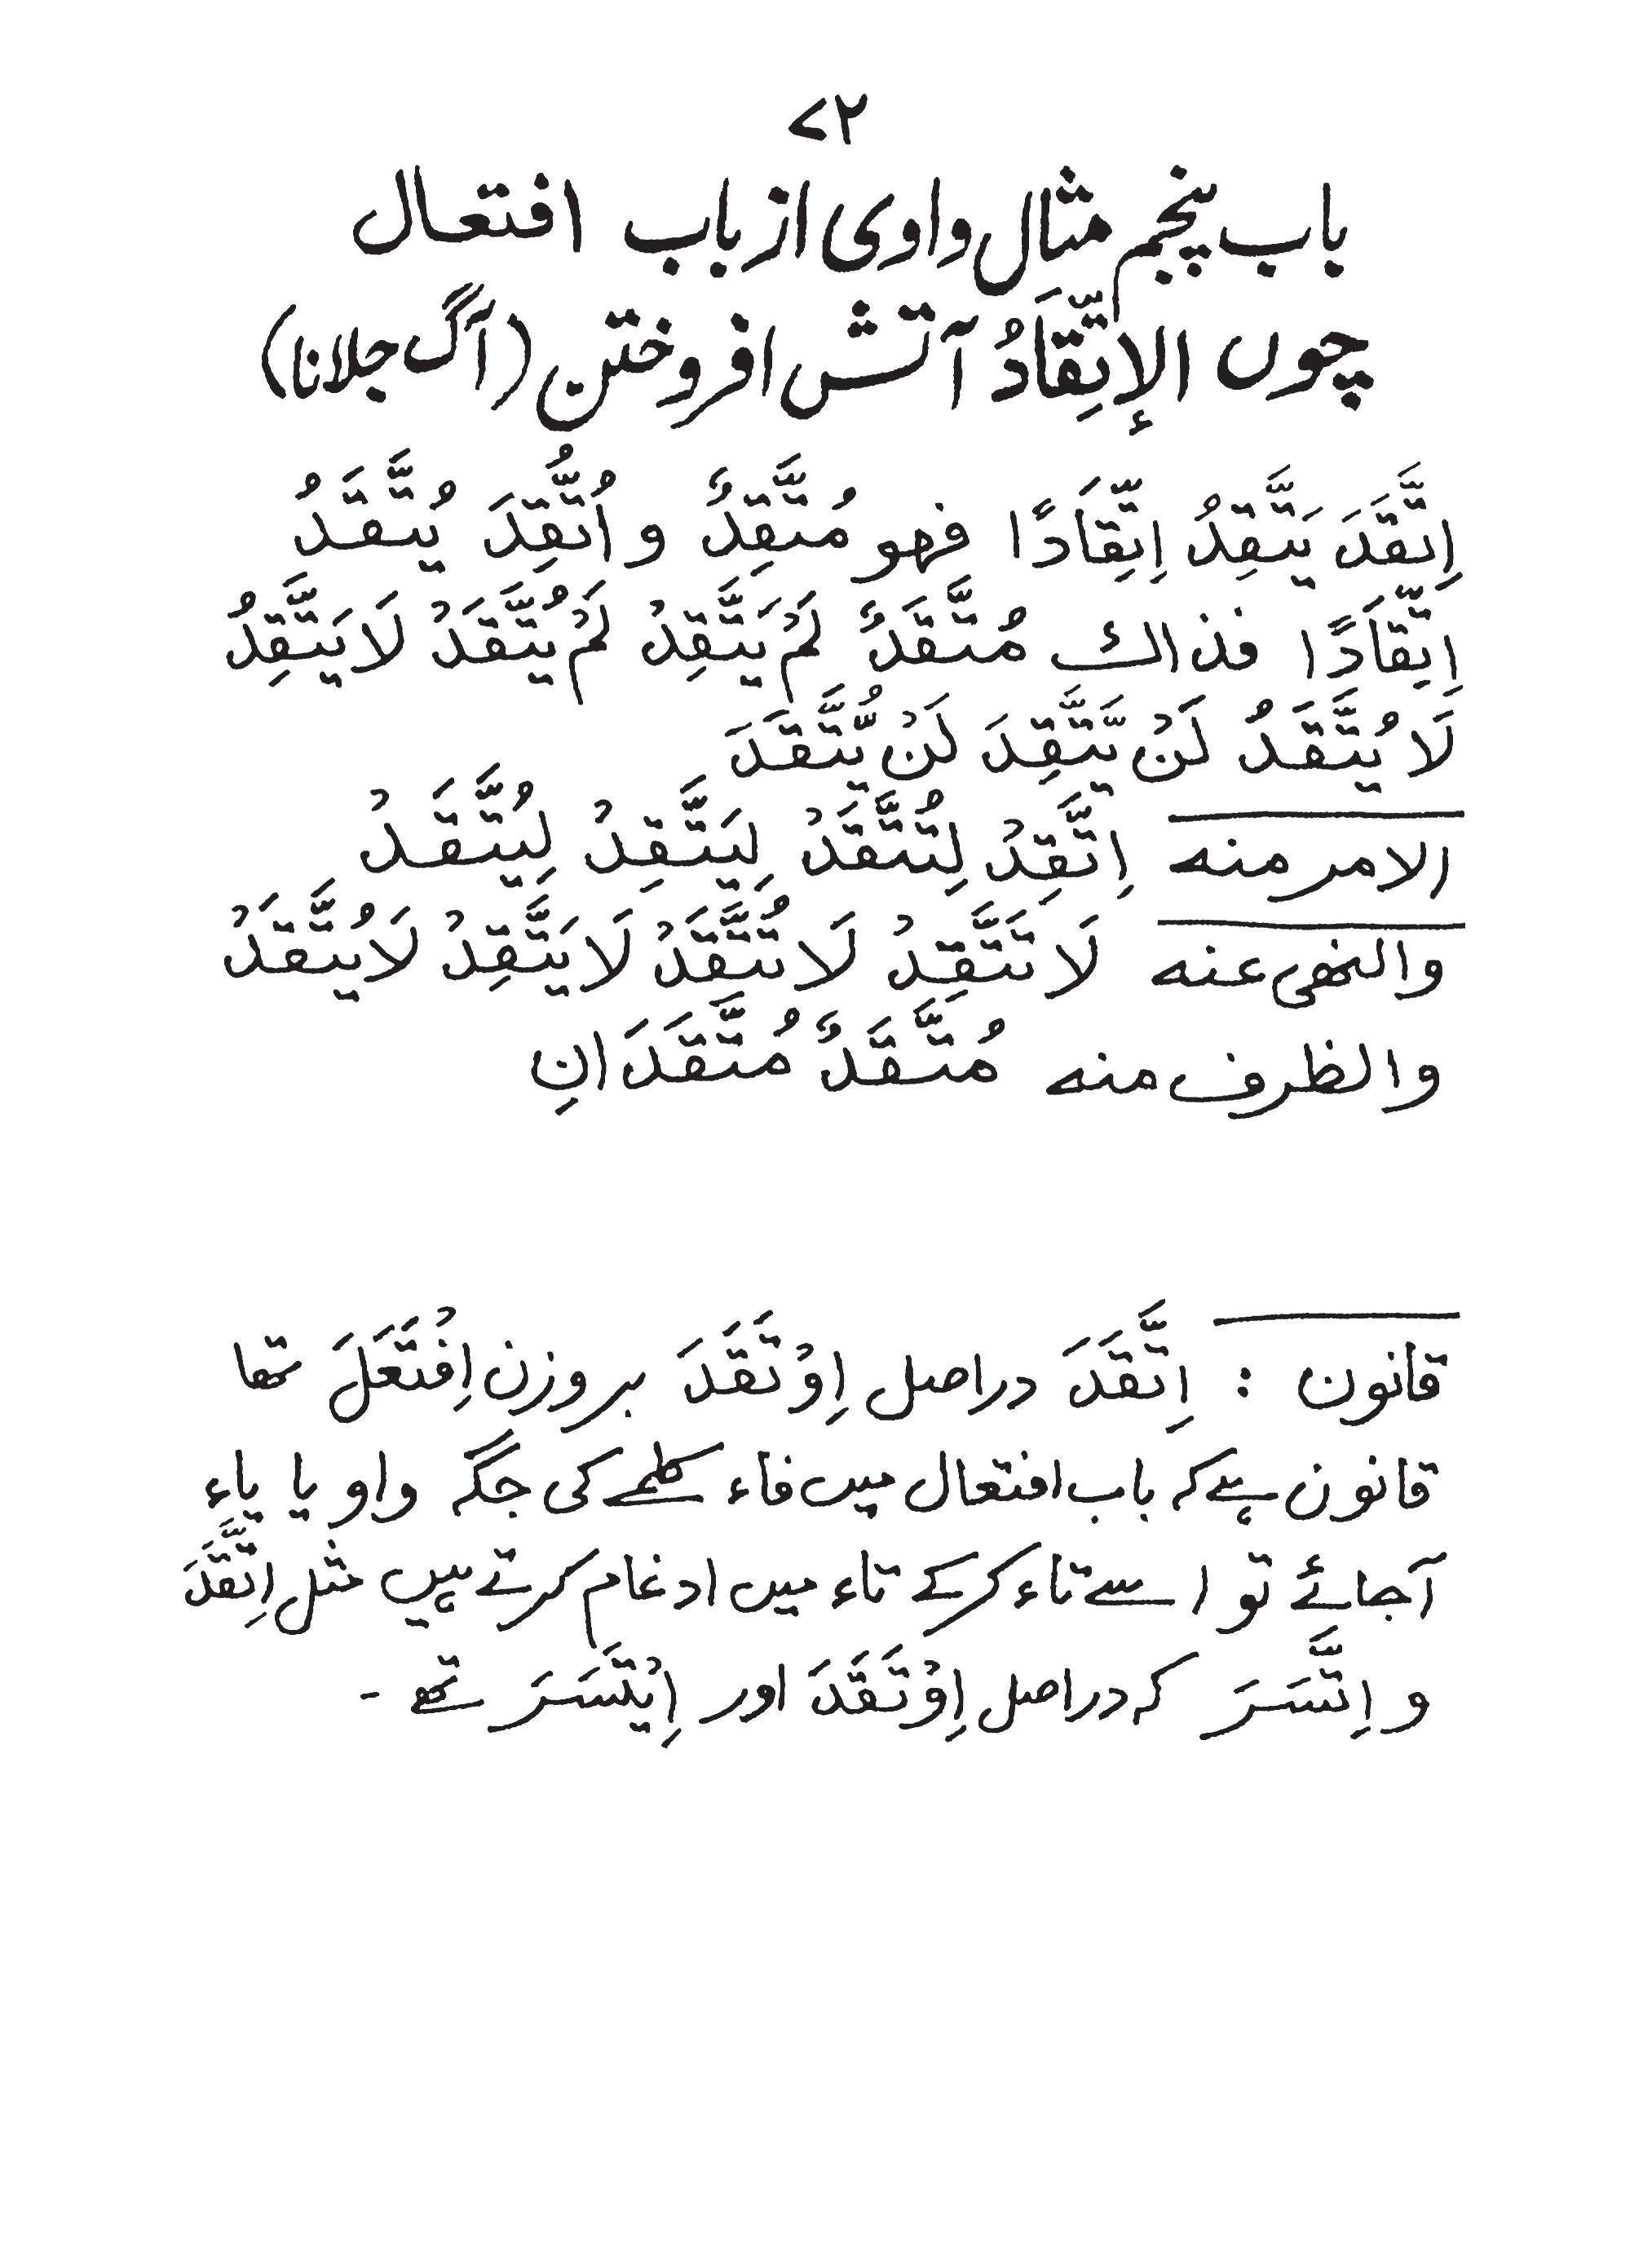 ۷۲
باب پنجم مثال واوی از باب افتعال
چوں الإِتِّقَادُ آتش افروختن (آگ جلانا)
اِتَّقَدَ يَتَّقِدُ اِتِّقَادًا فهو مُتَّقِدٌ و اُتُّقِدَ يُتَّقَدُ
اِتِّقَادًا فذالك مُتَّقَدٌ لَمْ يَتَّقِدْ لَمْ يُتَّقَدْ لَا يَتَّقِدُ
لَا يُتَّقَدُ لَنْ يَّتَّقِدَ لَنْ يُّتَّقَدَ
الامر منه اِتَّقِدْ لِتُتَّقَدْ لِيَتَّقِدْ لِيُتَّقَدْ
والنهی عنه لَا تَتَّقِدْ لَا تُتَّقَدْ لَا يَتَّقِدْ لَا يُتَّقَدْ
والظرف منه مُتَّقَدٌ مُتَّقَدَانِ
قانون : اِتَّقَدَ دراصل اِوْتَقَدَ بروزن اِفْتَعَلَ تھا
قانون ہے کہ باب افتعال میں فاء کلمے کی جگہ واو یا یاء
آجائے تو اسے تاء کر کے تاء میں ادغام کرتے ہیں مثل اِتَّقَدَ
و اِتَّسَرَ کہ دراصل اِوْتَقَدَ اور اِيْتَسَرَ تھے ۔